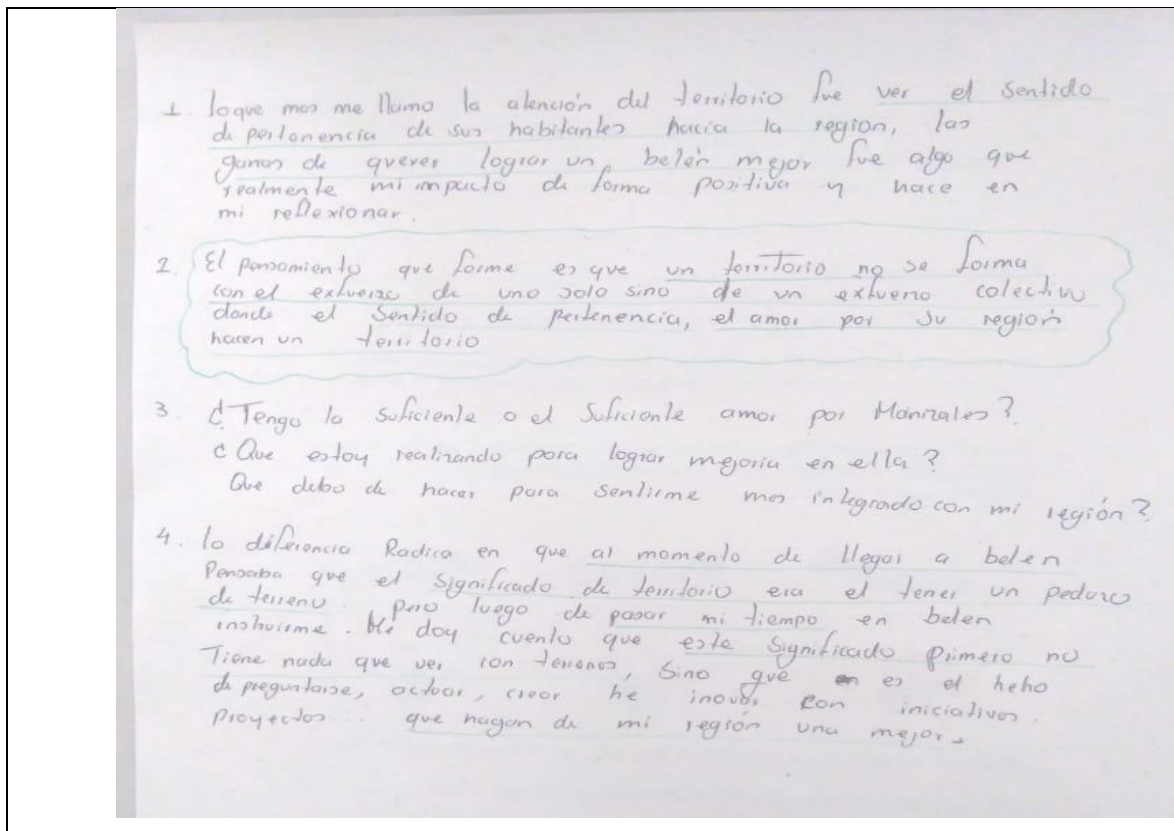 1. loque mas me llamo la atención del territorio fue ver el sentido
de pertenencia de sus habitantes hacia la region, las
ganas de querer lograr un belén mejor fue algo que
realmente mi impacto de forma positiva y hace en
mi reflexionar.
2. El pensamiento que forme es que un territorio no se forma
con el exfuerzo de uno solo sino de un exfuerzo colectivo
donde el sentido de pertenencia, el amor por su región
hacen un territorio
3. ¿Tengo lo suficiente o el suficiente amor por Manizales?
¿Que estoy realizando para lograr mejoria en ella?
Que debo de hacer para sentirme mas integrado con mi región?
4. la diferencia Radica en que al momento de llegar a belen
Pensaba que el significado de territorio era el tener un pedazo
de terreno. pero luego de pasar mi tiempo en belen
instruirme. Me doy cuenta que este significado primero no
Tiene nada que ver con terrenos, sino que es el heho
de preguntarse, actuar, crear he inovar con iniciativas.
Proyectos... que hagan de mi región una mejor.